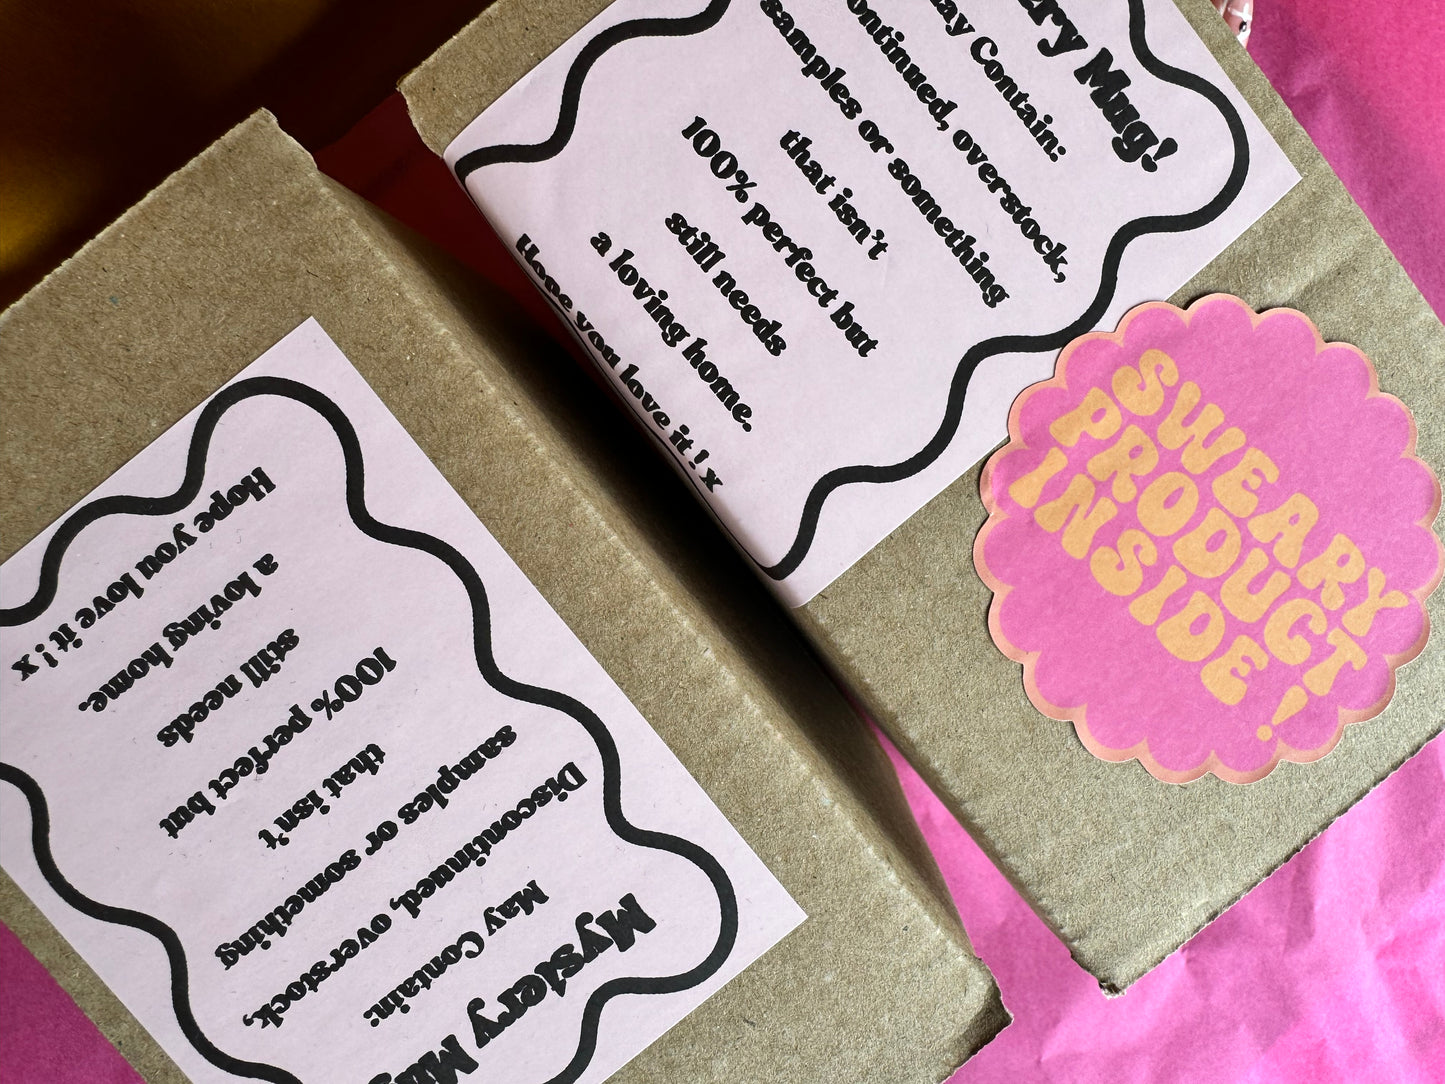 ery Mug!
ay Contain:
ontinued, overstock,
samples or something
that isn't
100% perfect but
still needs
a loving home.
Hope you love it ! x
SWEARY
PRODUCT
INSIDE !
Mystery Mu
May Contain:
Discontinued, overstock,
samples or something
that isn't
100% perfect but
still needs
a loving home.
Hope you love it ! x